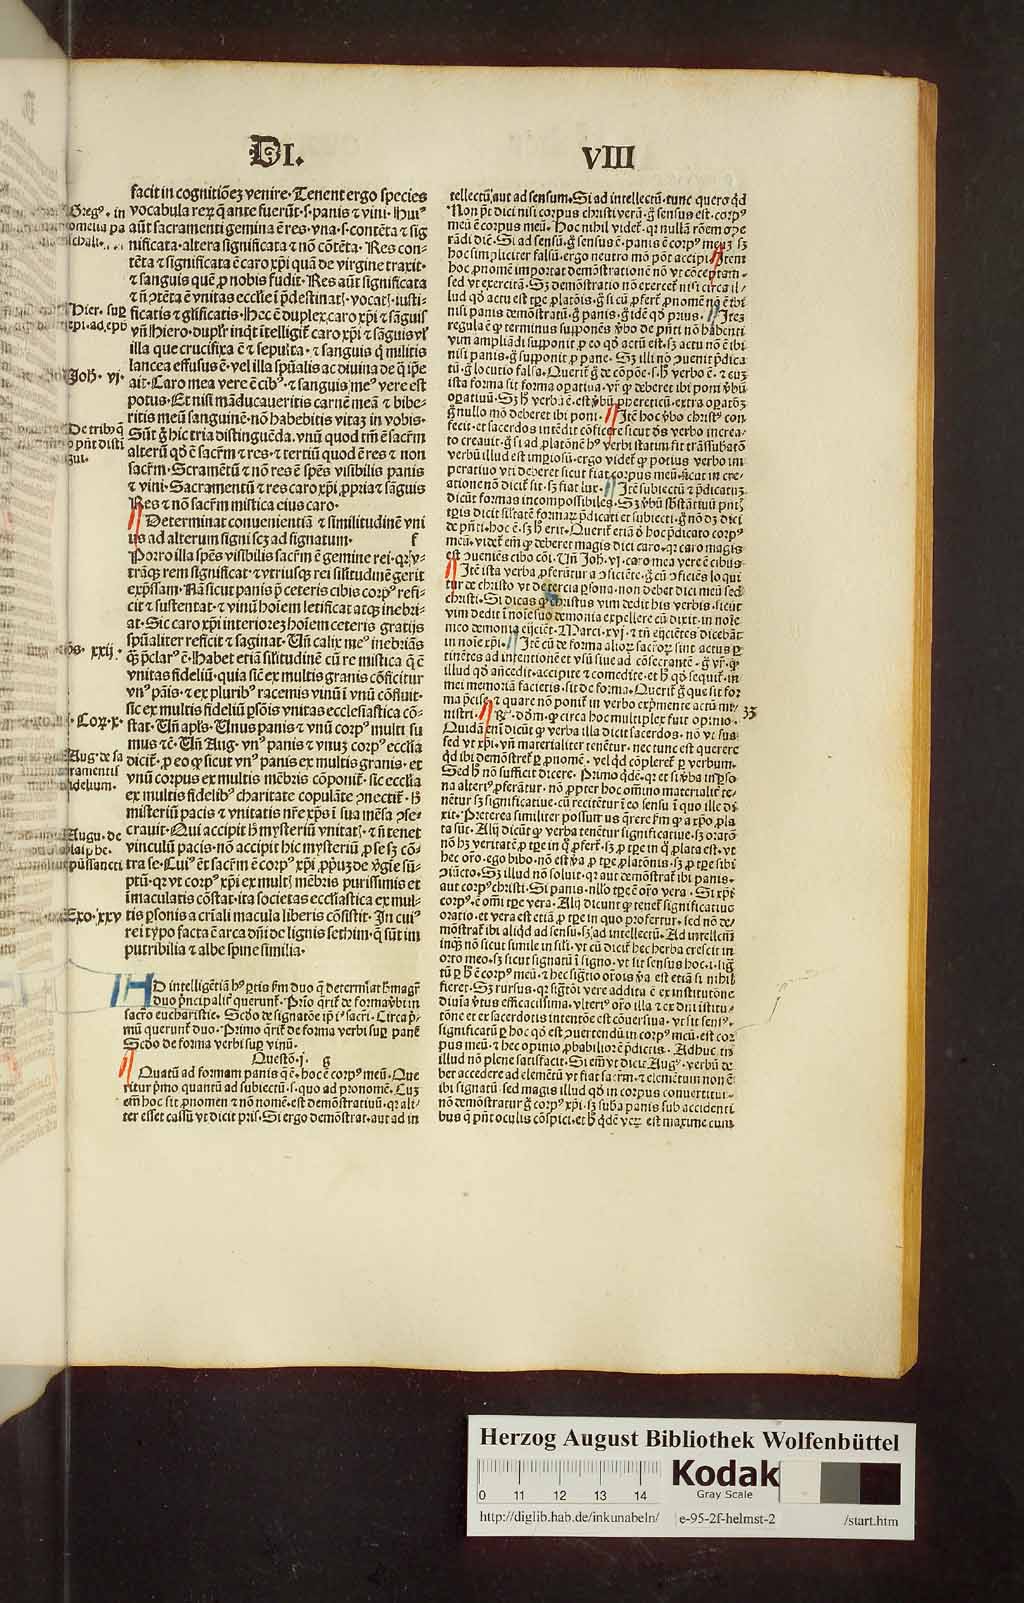 DI.
VIII
facit in cognitiõeȝ venire. Tenent ergo species
vocabula reꝝ q̃ ante fuerũt. s. panis ⁊ vini. Huiꝰ
aũt sacramenti gemina ẽ res. vna. s. contẽta ⁊ sig
nificata. altera significata ⁊ nõ cõtẽta. Res con-
tẽta ⁊ significata ẽ caro xp̃i quã de virgine traxit.
⁊ sanguis quẽ ꝓ nobis fudit. Res aũt significata
⁊ nõ ↄ̃tẽta ẽ vnitas eccl̃ie ĩ p̃destinatꝭ. vocatꝭ. iusti-
ficatis ⁊ gl̃ificatis. Hec ẽ duplex caro xp̃i ⁊ sãguis
vñ Hiero. dupl̃r inqt ĩtelligit̃ caro xp̃i ⁊ sãguis vl̃
illa que crucifixa ẽ ⁊ sepulta. ⁊ sanguis q̃ militis
lancea effusus ẽ. vel illa sp̃ualis ac diuina de q̃ ip̃e
ait. Caro mea vere ẽ cibꝰ. ⁊ sanguis meꝰ vere est
potus. Et nisi mãducaueritis carnẽ meã ⁊ bibe-
ritis meũ sanguinẽ. nõ habebitis vitaȝ in vobis.
Sũt g̃ hic tria distinguẽda. vnũ quod tm̃ ẽ sacr̃m
alterũ qd̃ ẽ sacr̃m ⁊ res. ⁊ tertiũ quod ẽ res ⁊ non
sacr̃m. Sacramẽtũ ⁊ nõ res ẽ sp̃es visibilis panis
⁊ vini. Sacramentũ ⁊ res caro xp̃i ꝓpria ⁊ sãguis
Res ⁊ nõ sacr̃m mistica eius caro.
Determinat conuenientiã ⁊ similitudinẽ vni
us ad alterum signi seȝ ad signatum. f
Porro illa sp̃es visibilis sacr̃m ẽ gemine rei. qꝛ v-
trãqꝫ rem significat. ⁊ vtriusqꝫ rei sil̃itudinẽ gerit
exp̃ssam. Nã sicut panis p̃ ceteris cibis corpꝰ refi-
cit ⁊ sustentat. ⁊ vinũ hoĩem letificat atqꝫ inebri-
at. Sic caro xp̃i interiorẽ hoĩem ceteris gratijs
sp̃ualiter reficit ⁊ saginat. Vñ calix meꝰ inebriãs
q̃ꝫ p̃clarꝰ ẽ. Habet etiã sil̃itudinẽ cũ re mistica q̃ ẽ
vnitas fideliũ. quia sic̃ ex multis granis cõficitur
vnꝰ pãis. ⁊ ex pluribꝰ racemis vinũ ĩ vnũ cõfluit.
sic ex multis fideliũ ꝑsõis vnitas ecclesiastica cõ-
stat. Vñ apl̃s. Vnus panis ⁊ vnũ corpꝰ multi su
mus ⁊c̃. Vñ Aug. vnꝰ panis ⁊ vnuȝ corpꝰ eccl̃ia
dicit̃. ꝓ eo ꝙ sicut vnꝰ panis ex multis granis. et
vnũ corpus ex multis mẽbris cõponit̃. sic eccl̃ia
ex multis fidelibꝰ charitate copulãte ↄ̃nectit̃. H̃
misteriũ pacis ⁊ vnitatis nr̃e xp̃s ĩ sua mẽsa ↄ̃se-
crauit. Qui accipit h̃ mysteriũ vnitatꝭ. ⁊ ñ tenet
vinculũ pacis. nõ accipit hic mysteriũ ꝓ se sȝ cõ-
tra se. Cuiꝰ ẽt sacr̃m ẽ corpꝰ xp̃i ꝓpꝛiuȝ de v̇gie sũ-
ptũ. qꝛ vt corpꝰ xp̃i ex multꝭ mẽbris purissimis et
ĩmaculatis cõstat. ita societas eccl̃iastica ex mul-
tis ꝑsonis a cr̃iali macula liberis cõsistit. In cuiꝰ
rei typo facta ẽ arca dñi de lignis sethim. q̃ sũt im
putribilia ⁊ albe spine similia.
HD intelligẽtiã hꝰ ꝑtis s̃m duo q̃ determĩat h̃ magr̃
duo p̃ncipalit̃ querunt̃. Prĩo q̃rit̃ de forma v̇bi in
sacr̃o eucharistie. Scd̃o de signatõne ip̃iꝰ sacr̃i. Circa p̃-
mũ querunt̃ duo. Primo q̃rit̃ de forma verbi suꝑ panẽ
Scd̃o de forma verbi suꝑ vinũ.
Questõ. j. g
Quãtũ ad formam panis q̃ ẽ. hoc ẽ corpꝰ meũ. Que
ritur p̃mo quantũ ad subiectũ. s. quo ad ꝓnomẽ. Cuȝ
em̃ hoc sit ꝓnomen ⁊ nõ nomẽ. est demõstratiuũ. qꝛ ali-
ter esset cassũ vt dicit pris. Si ergo demõstrat. aut ad in
Gregꝰ. in
omelia pa
schali.
Hier. suꝑ
epi. ad. eph̃
Joh̃. vj.
De trib q̃
xxij.
Coꝝ. x.
Aug. de sa
cramentis
fidelium.
Augu. de
Exo. xxv
tellectũ, aut ad sensum. Si ad intellectũ. tunc quero q̃d
Non p̃t dici nisi corpus christi verũ. g̃ sensus est. corpꝰ
meũ ẽ corpus meũ. Hoc nihil videt̃. qꝛ nullã rõem ope
rãdi dic̃. Si ad sensũ. g̃ sensus ẽ. panis ẽ corpꝰ meuȝ sȝ
hoc simpliciter falsũ. ergo neutro mõ põt accipi. Itẽ
hoc ꝓnomẽ importat demõstrationẽ nõ vt cõceptam.
sed vt exercitã. Sȝ demõstratio nõ exercet̃ nisi circa il-
lud qd̃ actu est tꝑe ꝓlatõis. g̃ si cũ ꝓfert̃ ꝓnomẽ nõ ẽ ibi
nisi panis demõstratũ. g̃ panis. g̃ idẽ qd̃ prius. Iteȝ
regula ẽ ꝙ terminus supponẽs v̇bo de p̃nti nõ habenti
vim ampliãdi supponit ꝓ eo qd̃ actũ est. sȝ actu nõ ẽ ibi
nisi panis. g̃ supponit ꝓ pane. Sȝ illi nõ ↄ̃uenit p̃dica
tũ. g̃ locutio falsa. Querit̃ g̃ de cõpõe. s. h̃ verbo ẽ. ⁊ cuȝ
ista forma sit forma oꝑatiua. vr̃ ꝙ deberet ibi poni v̇bũ
oꝑatiuũ. Sȝ h̃ verbũ ẽ. est v̇bũ p̃hereticũ. extra oꝑatõȝ
g̃ nullo mõ deberet ibi poni. Itẽ hoc v̇bo christꝰ con
fecit. et sacerdos intẽdit cõficere sicut dñs verbo increa-
to creauit. g̃ si ad ꝓlatõnẽ hꝰ verbi statim fit trãssubstãtõ
verbũ illud est impiosũ. ergo videt̃ ꝙ potius verbo im
peratiuo vti deberet sicut fiat corpus meũ. sicut in cre-
atione nõ dicit̃ sit. sȝ fiat lux. Itẽ subiectũ ⁊ p̃dicatuȝ
dicũt formas incompossibiles. Sȝ v̇bũ sb̃stãtiuũ p̃ntꝭ
tꝑis dicit sil̃itatẽ formaꝝ p̃dicati et subiecti. g̃ nõ dȝ dici
de p̃nti. hoc ẽ. sȝ h̃ erit. Querit̃ etiã d̃ hoc p̃dicato corpꝰ
meũ. videt̃ em̃ ꝙ deberet magis dici caro. qꝛ caro magis
est ↄ̃ueniẽs cibo cõi. Vñ Joh̃. vj. caro mea vere ẽ cibus.
Itẽ ista verba ꝓferũtur a ↄ̃ficiẽte. g̃ cũ ↄ̃ficiẽs loqui
tur de christo vt de tercia ꝑsona. non debet dici meũ sed
christi. Si dicas ꝙ christus vim dedit his verbis. sicut
vim dedit ĩ noĩe suo demonia expellere cũ dixit. in noĩe
meo demonia eijciẽt. Marci. xvj. ⁊ tñ eijciẽtes dicebãt
in noĩe xp̃i. Itẽ cũ de forma alioꝝ sacr̃oꝝ sint actus ꝑ
tinẽtes ad intentionẽ et vsũ siue ad cõsecrantẽ. g̃ vr̃. ꝙ
illud qd̃ an̄cedit. accipite ⁊ comedite. et h̃ qd̃ sequit̃. in
mei memoriã facietis. sit de forma. Querit̃ g̃ que sit for
ma p̃cise. ⁊ quare nõ ponit̃ in verbo exp̃mente actũ mi-
nistri. R̃. dõm. ꝙ circa hoc multiplex fuit opinio.
Quidã em̃ dicũt ꝙ verba illa dicit sacerdos. nõ vt sua
sed vt xp̃i. vñ materialiter tenẽtur. nec tunc est querere
qd̃ ibi demõstret̃ ꝑ ꝓnomẽ. vel qd̃ cõpleret̃ ꝑ verbum.
Sed h̃ nõ sufficit dicere. Primo q̃dẽ. qꝛ et si v̇ba in ꝑso
na alteriꝰ ꝓferãtur. nõ ꝓpter hoc om̃ino materialit̃ te-
nẽtur sȝ significatiue. cũ recitẽtur ĩ eo sensu ĩ quo ille di
xit. Preterea similiter possum̃us q̃rere s̃m ꝙ a xp̃o ꝓla
ta sũt. Alij dicũt ꝙ verba tenẽtur significatiue. sȝ oratõ
nõ hȝ veritatẽ ꝑ tꝑe in q̃ ꝓfert̃. sȝ ꝓ tꝑe in q̃ ꝓlata est. vt
hec or̃o. ego bibo. nõ est v̇a ꝓ tꝑe ꝓlatõnis. sȝ ꝓ tꝑe sibi
ↄ̃iũcto. Sȝ illud nõ soluit. qꝛ aut demõstrat̃ ibi panis.
aut corpꝰ christi. Si panis. nll̃o tꝑe ẽ or̃o vera. Si xp̃i
corpꝰ. ẽ om̃i tꝑe vera. Alij dicunt ꝙ tenet̃ significatiue
oratio. et vera est etiã ꝓ tꝑe in quo profertur. sed nõ de-
mõstrat̃ ibi aliq̃d ad sensũ. sȝ ad intellectũ. Ad intellc̃m
inq̃ꝫ nõ sicut simile in sil̃i. vt cũ dicit̃ hec herba crescit in
orto meo. sȝ sicut signatũ ĩ signo. vt sit sensus hoc. i. sig̃
tũ ꝑ h̃ ẽ corpꝰ meũ. ⁊ hec sig̃tio or̃ois v̇a est etiã si nihil
fieret. Sȝ rursus. qꝛ sig̃tõi vere addita ẽ ex institutõne
diuina v̇tus efficacissima. vlteriꝰ or̃o illa ⁊ ex dñi istitu-
tõne et ex sacerdotis intentõe est cõuersiua. vt sit sensꝰ.
significatũ ꝑ hoc qd̃ est ↄ̃uertendũ in corpꝰ meũ. est cor
pus meũ. ⁊ hec opinio ꝓbabilior ẽ p̃dictis. Adhuc tñ
illud nõ plene satisfacit. Si em̃ vt dicit Augꝰ. verbũ de
ber accedere ad elemẽtũ vt fiat sacr̃m. ⁊ elemẽtum non ẽ
ibi signatũ. sed magis illud qd̃ in corpus conuertitur.
nõ demõstratur g̃ corpꝰ xp̃i. sȝ sub̃a panis sub accidenti
bus q̃ p̃nt oculis cõspici. et h̃ q̃dẽ veꝝ est maxime cum
33
Herzog August Bibliothek Wolfenbüttel
0 11 12 13 14
Kodak
Gray Scale
http://diglib.hab.de/inkunabeln/ e-95-2f-helmst-2 /start.htm